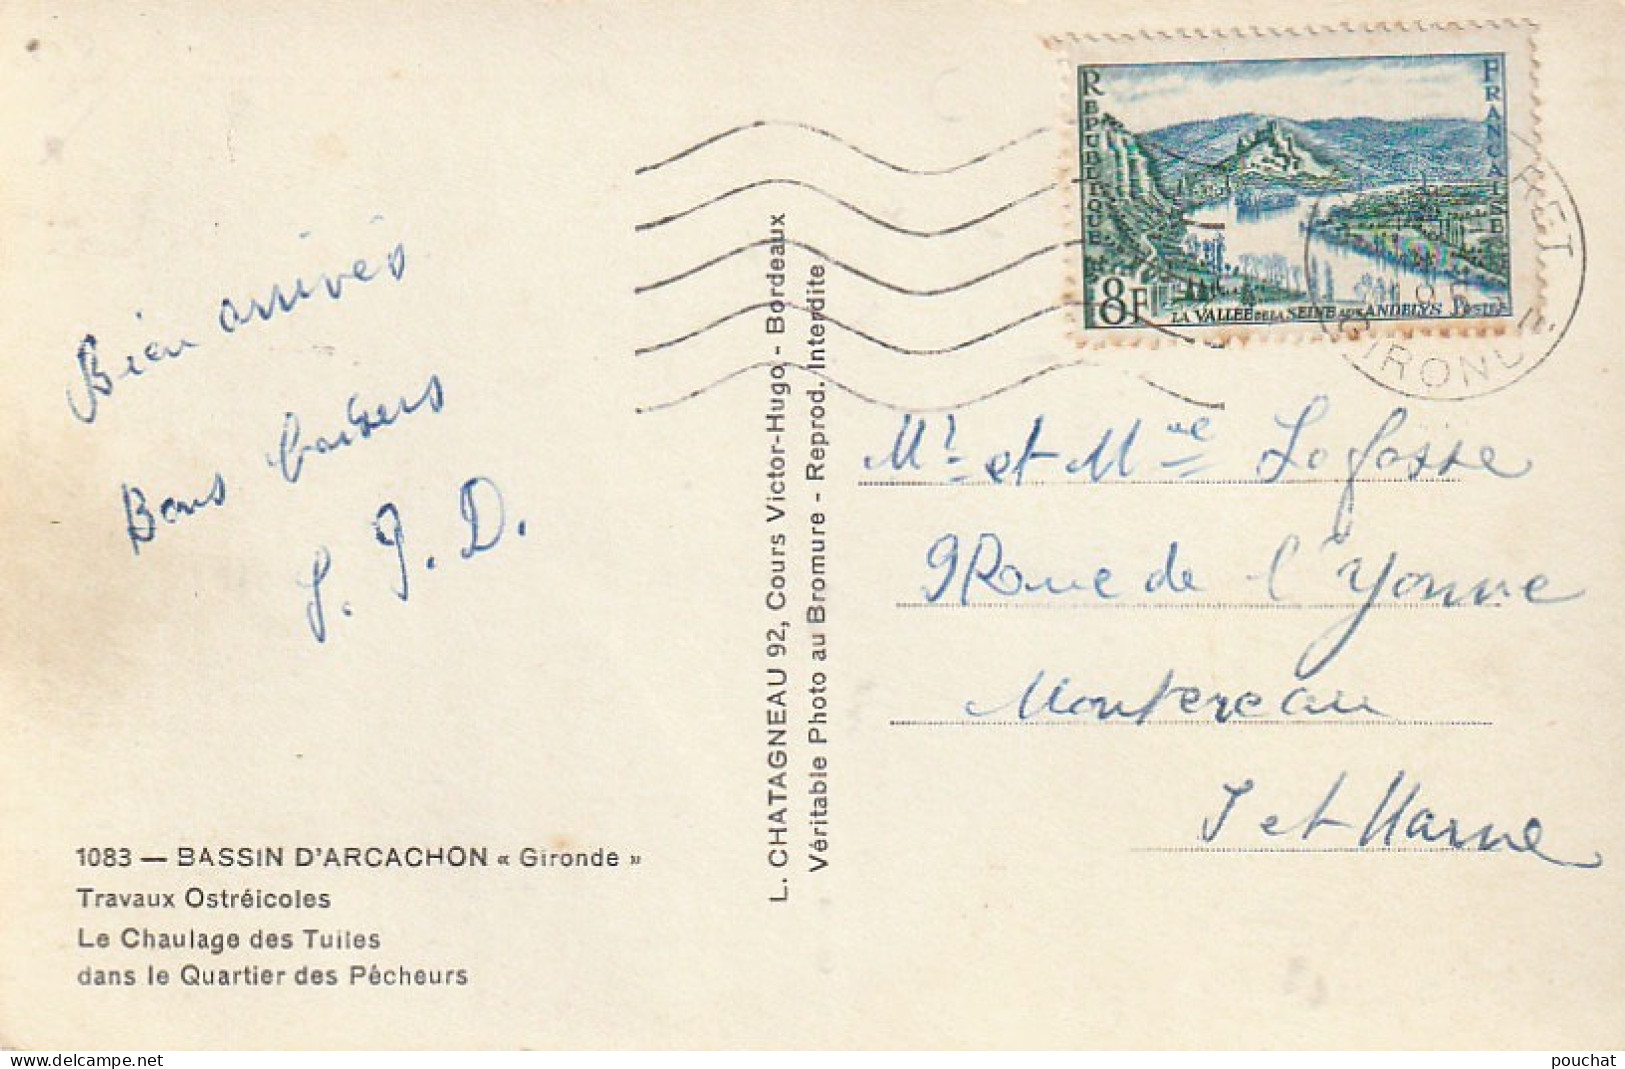 Bien arrivés
Bons baisers
J. J. D.
1083 — BASSIN D'ARCACHON « Gironde »
Travaux Ostréicoles
Le Chaulage des Tuiles
dans le Quartier des Pêcheurs
L. CHATAGNEAU 92, Cours Victor-Hugo - Bordeaux
Véritable Photo au Bromure - Reprod. Interdite
REPUBLIQUE FRANÇAISE
8F
LA VALLEE DE LA SEINE AUX ANDELYS POSTES
GIRONDE
Mr et Mme Lafosse
9 Rue de l'Yonne
Montereau
S et Marne
www.delcampe.net
pouchat